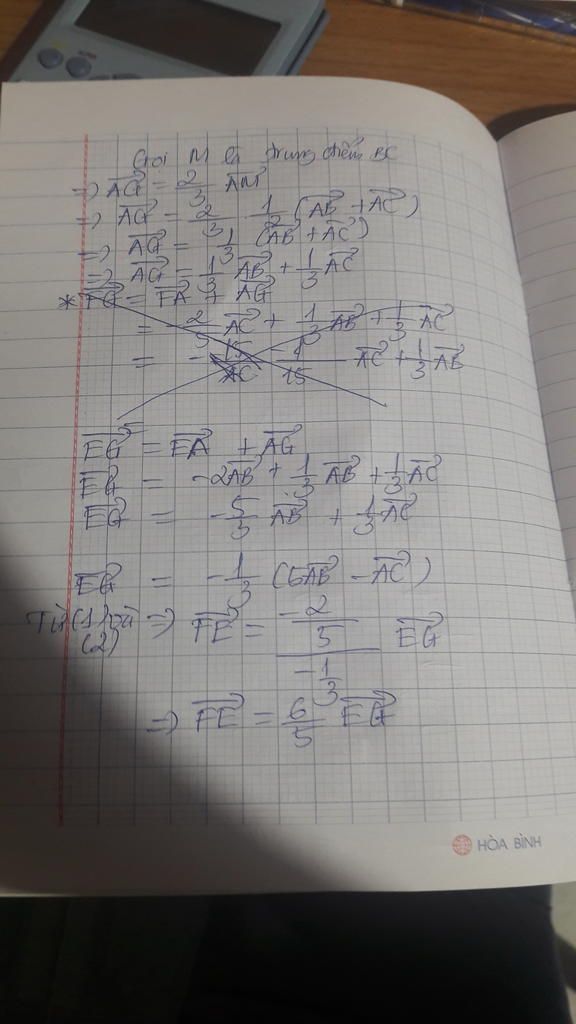 Gọi M là trung điểm BC
=> AG = 2/3 AM
=> AG = 2/3 . 1/2 (AB + AC)
=> AG = 1/3 (AB + AC)
=> AG = 1/3 AB + 1/3 AC
* FG = FA + AG
= 2/5 AC + 1/3 AB + 1/3 AC
= - 1/15 AC + 1/3 AB
EG = EA + AG
EG = -2AB + 1/3 AB + 1/3 AC
EG = -5/3 AB + 1/3 AC
EG = -1/3 (5AB - AC)
Từ (1) và (2) => FE = (-2/5)/(-1/3) EG
=> FE = 6/5 EG
HÒA BÌNH